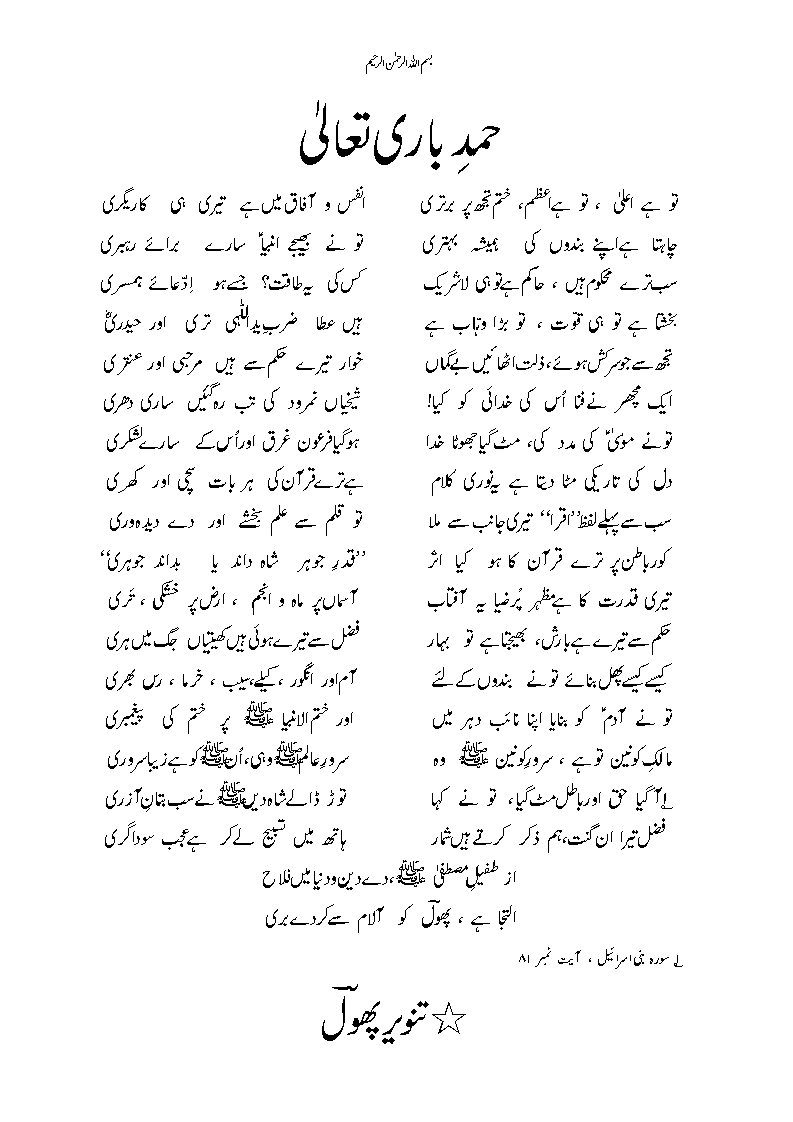 بسم اللہ الرحمٰن الرحیم
حمدِ باری تعالیٰ
تو ہے اعلیٰ ، تو ہے اعظم، ختم تجھ پر برتری انفس و آفاق میں ہے تیری ہی کاریگری
چاہتا ہے اپنے بندوں کی ہمیشہ بہتری تو نے بھیجے انبیاؑ سارے برائے رہبری
سب ترے محکوم ہیں ، حاکم ہے تو ہی لاشریک کس کی یہ طاقت؟ جسے ہو اِدّعائے ہمسری
بخشتا ہے تو ہی قوت ، تو بڑا وہاب ہے ہیں عطا ضربِ یداللّٰہی تری اور حیدریؓ
تجھ سے جو سرکش ہوئے، ذلت اٹھائیں بےگماں خوار تیرے حکم سے ہیں مرحبی اور عنتری
ایک مچھر نے فنا اُس کی خدائی کو کیا! شیخیاں نمرود کی تب رہ گئیں ساری دھری
تو نے موسیٰؑ کی مدد کی، مٹ گیا جھوٹا خدا ہو گیا فرعون غرق اور اُس کے سارے لشکری
دل کی تاریکی مٹا دیتا ہے یہ نوری کلام ہے ترے قرآن کی ہر بات سچی اور کھری
سب سے پہلے لفظ ’’اقرا‘‘ تیری جانب سے ملا تو قلم سے علم بخشے اور دے دیدہ وری
کور باطن پر ترے قرآن کا ہو کیا اثر ’’قدرِ جوہر شاہ داند یا بداند جوہری‘‘
تیری قدرت کا ہے مظہر پُرضیا یہ آفتاب آسماں پر ماہ و انجم ، ارض پر خشکی ، تَری
حکم سے تیرے ہے بارش، بھیجتا ہے تو بہار فضل سے تیرے ہوئی ہیں کھیتیاں جگ میں ہری
کیسے کیسے پھل بنائے تو نے بندوں کے لئے آم اور انگور ، کیلے، سیب ، خرما ، رس بھری
تو نے آدمؑ کو بنایا اپنا نائب دہر میں اور ختم الانبیا ﷺ پر ختم کی پیغمبری
مالکِ کونین تو ہے ، سرورِ کونین ﷺ وہ سرورِ عالم ﷺ وہی، اُن ﷺ کو ہے زیبا سروری
۱؎ آ گیا حق اور باطل مٹ گیا، تو نے کہا توڑ ڈالے شاہِ دیں ﷺ نے سب بتانِ آزری
فضل تیرا ان گنت، ہم ذکر کرتے ہیں شمار ہاتھ میں تسبیح لے کر ہے عجب سوداگری
از طفیلِ مصطفیٰ ﷺ ، دے دین و دنیا میں فلاح
التجا ہے ، پھولؔ کو آلام سے کر دے بری
۱؎ سورہ بنی اسرائیل ، آیت نمبر ۸۱
☆ تنویر پھولؔ